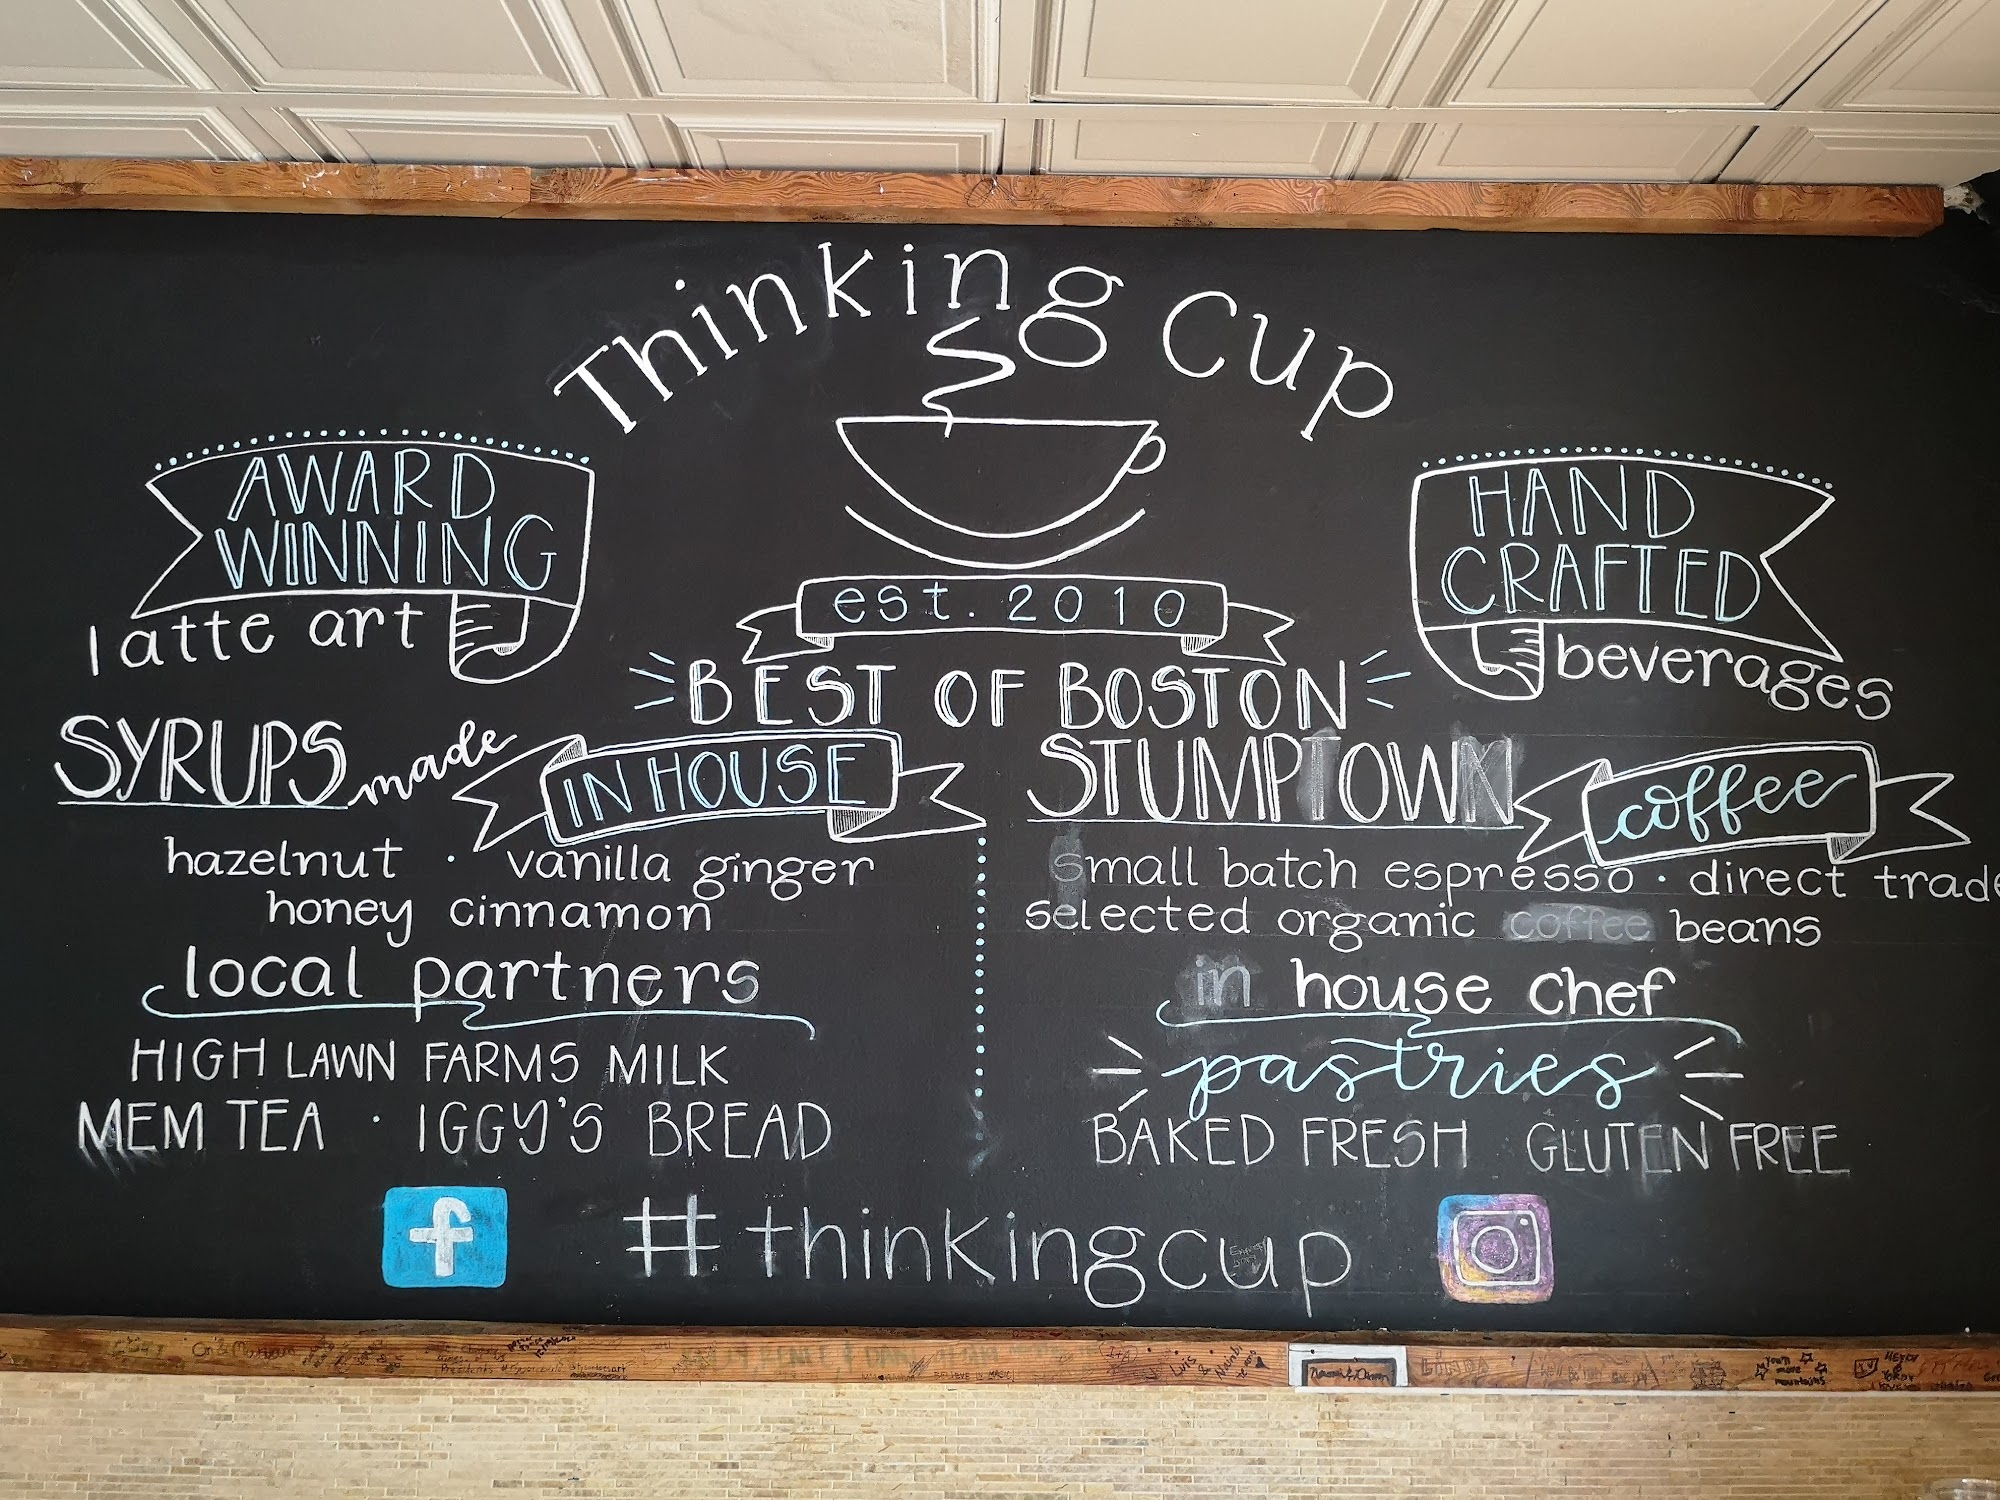 Thinking Cup
AWARD
WINNING
latte art
HAND
CRAFTED
beverages
est. 2010
BEST OF BOSTON
SYRUPS made IN HOUSE
hazelnut · vanilla ginger
honey cinnamon
local partners
HIGH LAWN FARMS MILK
MEM TEA · IGGY'S BREAD
STUMPTOWN coffee
small batch espresso · direct trade
selected organic coffee beans
in house chef
pastries
BAKED FRESH GLUTEN FREE
f #thinkingcup
LINDA
You'll
move
mountains